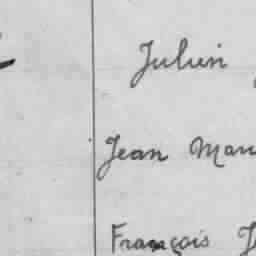 Julien
Jean Mau
François J